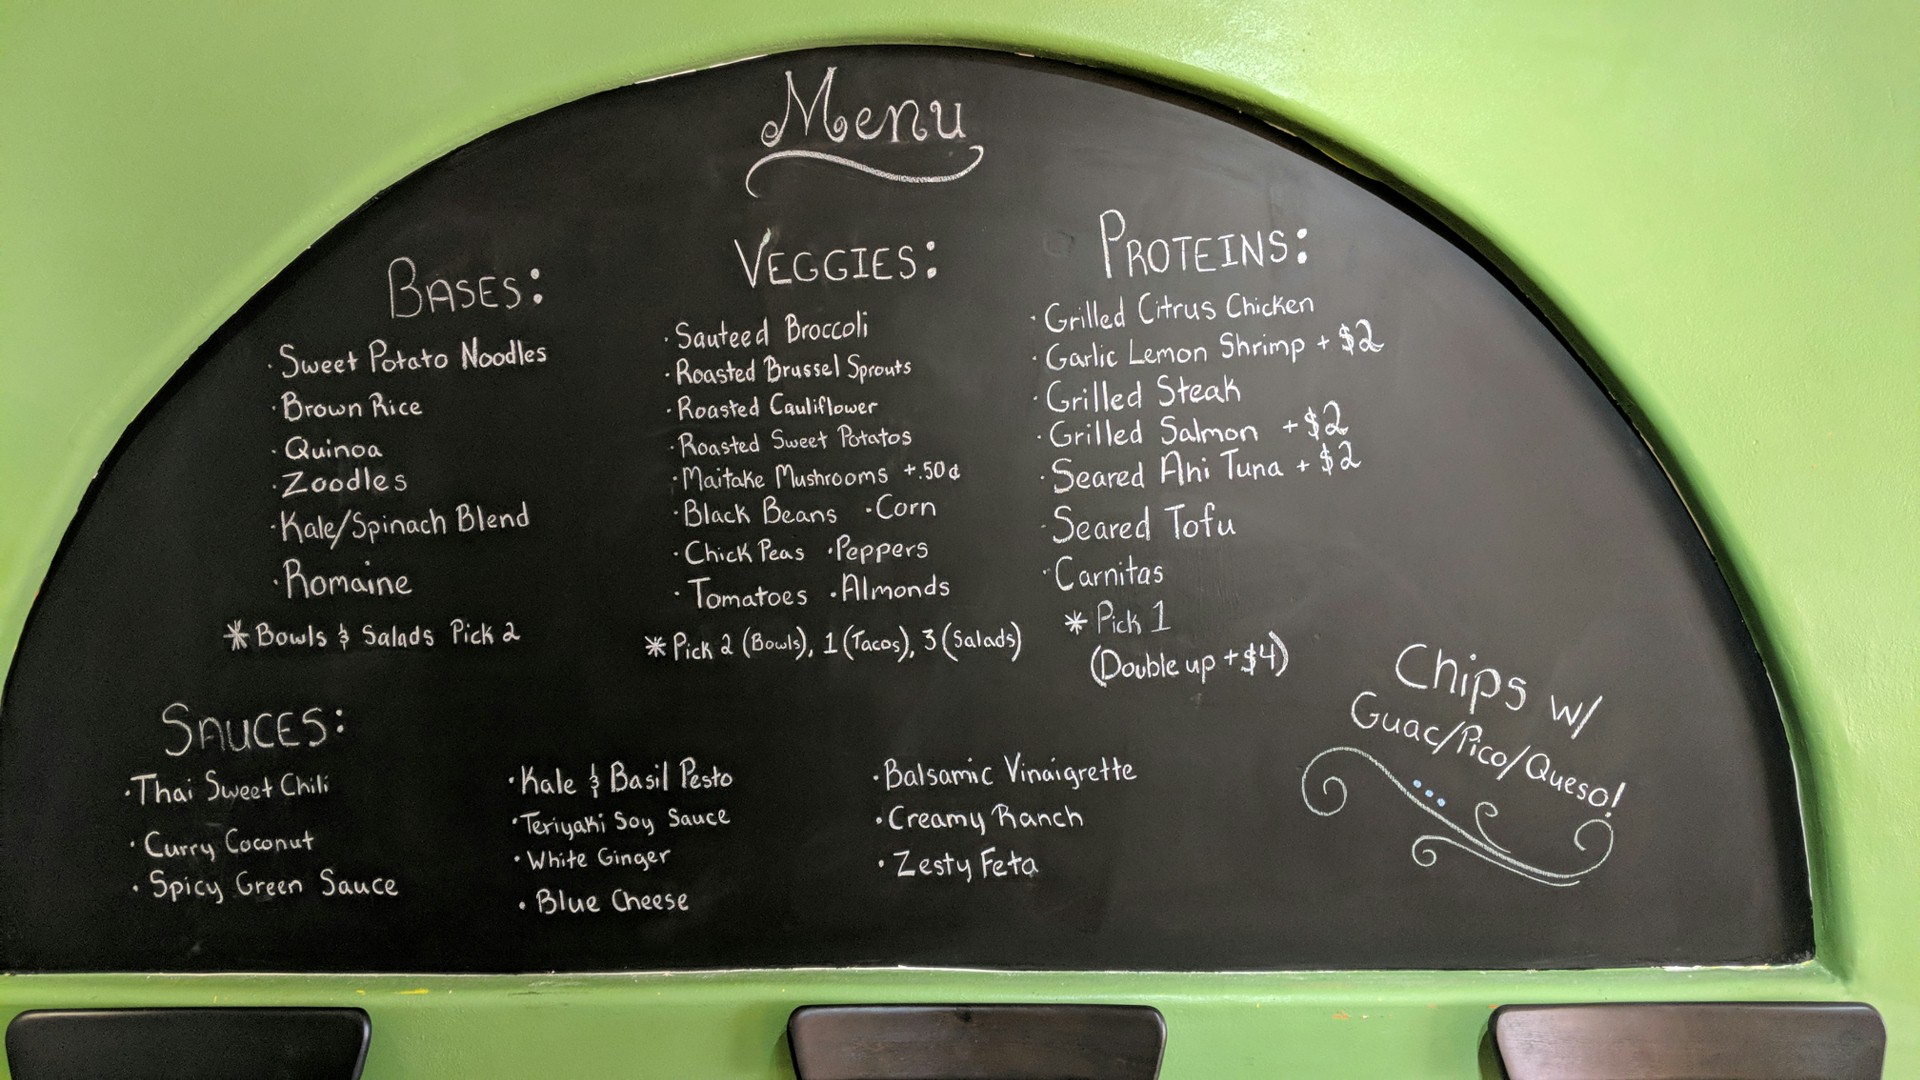 Menu
Bases:
· Sweet Potato Noodles
· Brown Rice
· Quinoa
· Zoodles
· Kale/Spinach Blend
· Romaine
* Bowls & Salads Pick 2
Veggies:
· Sauteed Broccoli
· Roasted Brussel Sprouts
· Roasted Cauliflower
· Roasted Sweet Potatos
· Maitake Mushrooms +.50¢
· Black Beans · Corn
· Chick Peas · Peppers
· Tomatoes · Almonds
* Pick 2 (Bowls), 1 (Tacos), 3 (Salads)
Proteins:
· Grilled Citrus Chicken
· Garlic Lemon Shrimp + $2
· Grilled Steak
· Grilled Salmon + $2
· Seared Ahi Tuna + $2
· Seared Tofu
· Carnitas
* Pick 1
(Double up + $4)
Sauces:
· Thai Sweet Chili
· Curry Coconut
· Spicy Green Sauce
· Kale & Basil Pesto
· Teriyaki Soy Sauce
· White Ginger
· Blue Cheese
· Balsamic Vinaigrette
· Creamy Ranch
· Zesty Feta
Chips w/
Guac/Pico/Queso!